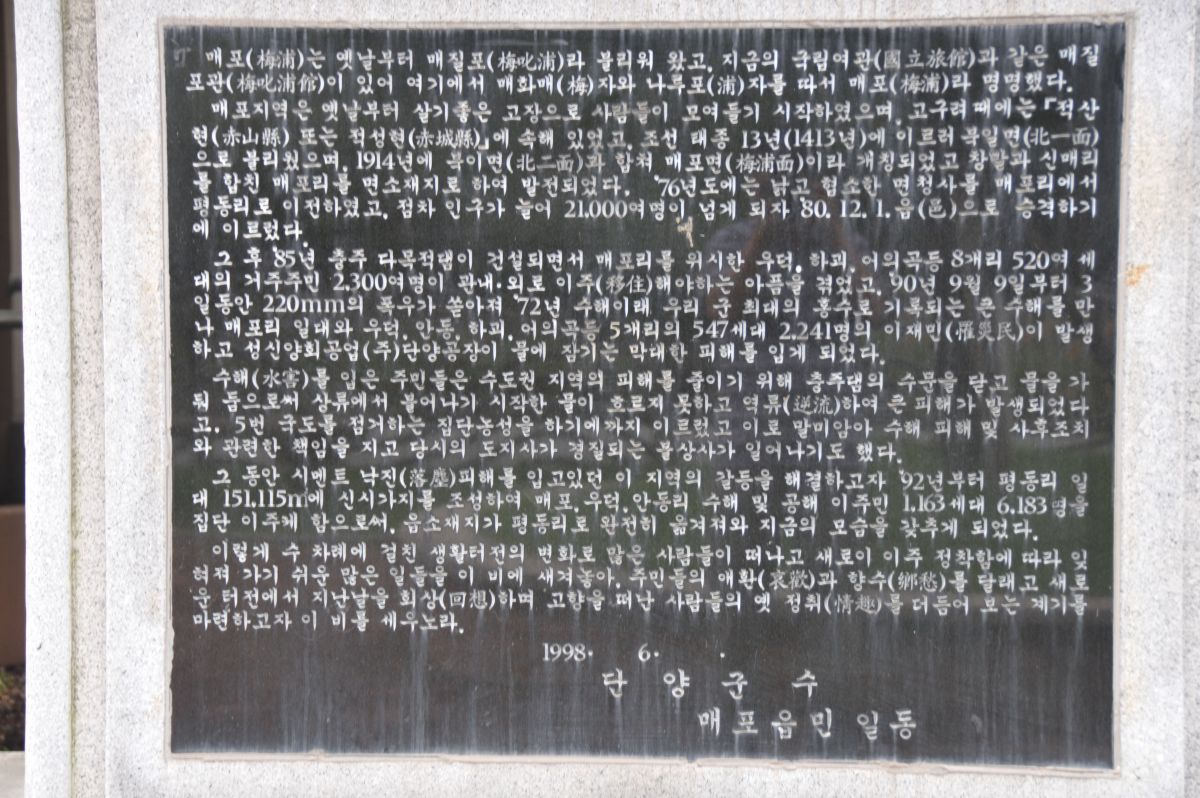 매포(梅浦)는 옛날부터 매질포(梅叱浦)라 불리워 왔고, 지금의 국립여관(國立旅館)과 같은 매질
포관(梅叱浦館)이 있어 여기에서 매화매(梅)자와 나루포(浦)자를 따서 매포(梅浦)라 명명했다.
매포지역은 옛날부터 살기좋은 고장으로 사람들이 모여들기 시작하였으며, 고구려때에는 「적산
현(赤山縣) 또는 적성현(赤城縣)」에 속해 있었고, 조선 태종 13년(1413년)에 이르러 북일면(北一面)
으로 불리웠으며, 1914년에 북이면(北二面)과 합쳐 매포면(梅浦面)이라 개칭되었고 창말과 신매리
를 합친 매포리를 면소재지로 하여 발전되었다. '76년도에는 낡고 협소한 면청사를 매포리에서
평동리로 이전하였고, 점차 인구가 늘어 21,000여명이 넘게 되자 '80. 12. 1. 읍(邑)으로 승격하기
에 이르렀다.
그 후 '85년 충주 다목적댐이 건설되면서 매포리를 위시한 우덕, 하괴, 어의곡등 8개리 520여 세
대의 거주주민 2,300여명이 관내·외로 이주(移住)해야하는 아픔을 겪었고, '90년 9월 9일부터 3
일동안 220mm의 폭우가 쏟아져 '72년 수해이래 우리 군 최대의 홍수로 기록되는 큰 수해를 만
나 매포리 일대와 우덕, 안동, 하괴, 어의곡등 5개리의 547세대 2,241명의 이재민(罹災民)이 발생
하고 성신양회공업(주)단양공장이 물에 잠기는 막대한 피해를 입게 되었다.
수해(水害)를 입은 주민들은 수도권 지역의 피해를 줄이기 위해 충주댐의 수문을 닫고 물을 가
둬 둠으로써 상류에서 불어나기 시작한 물이 흐르지 못하고 역류(逆流)하여 큰 피해가 발생되었다
고, 5번 국도를 점거하는 집단농성을 하기에까지 이르렀고 이로 말미암아 수해 피해 및 사후조치
와 관련한 책임을 지고 당시의 도지사가 경질되는 불상사가 일어나기도 했다.
그 동안 시멘트 낙진(落塵)피해를 입고있던 이 지역의 갈등을 해결하고자 '92년부터 평동리 일
대 151,115㎡에 신시가지를 조성하여 매포, 우덕, 안동리 수해 및 공해 이주민 1,163세대 6,183명을
집단 이주케 함으로써, 읍소재지가 평동리로 완전히 옮겨져와 지금의 모습을 갖추게 되었다.
이렇게 수 차례에 걸친 생활터전의 변화로 많은 사람들이 떠나고 새로이 이주 정착함에 따라 잊
혀져 가기 쉬운 많은 일들을 이 비에 새겨놓아, 주민들의 애환(哀歡)과 향수(鄕愁)를 달래고 새로
운 터전에서 지난날을 회상(回想)하며 고향을 떠난 사람들의 옛 정취(情趣)를 더듬어 보는 계기를
마련하고자 이 비를 세우노라.
1998. 6. .
단양군수
매포읍민 일동